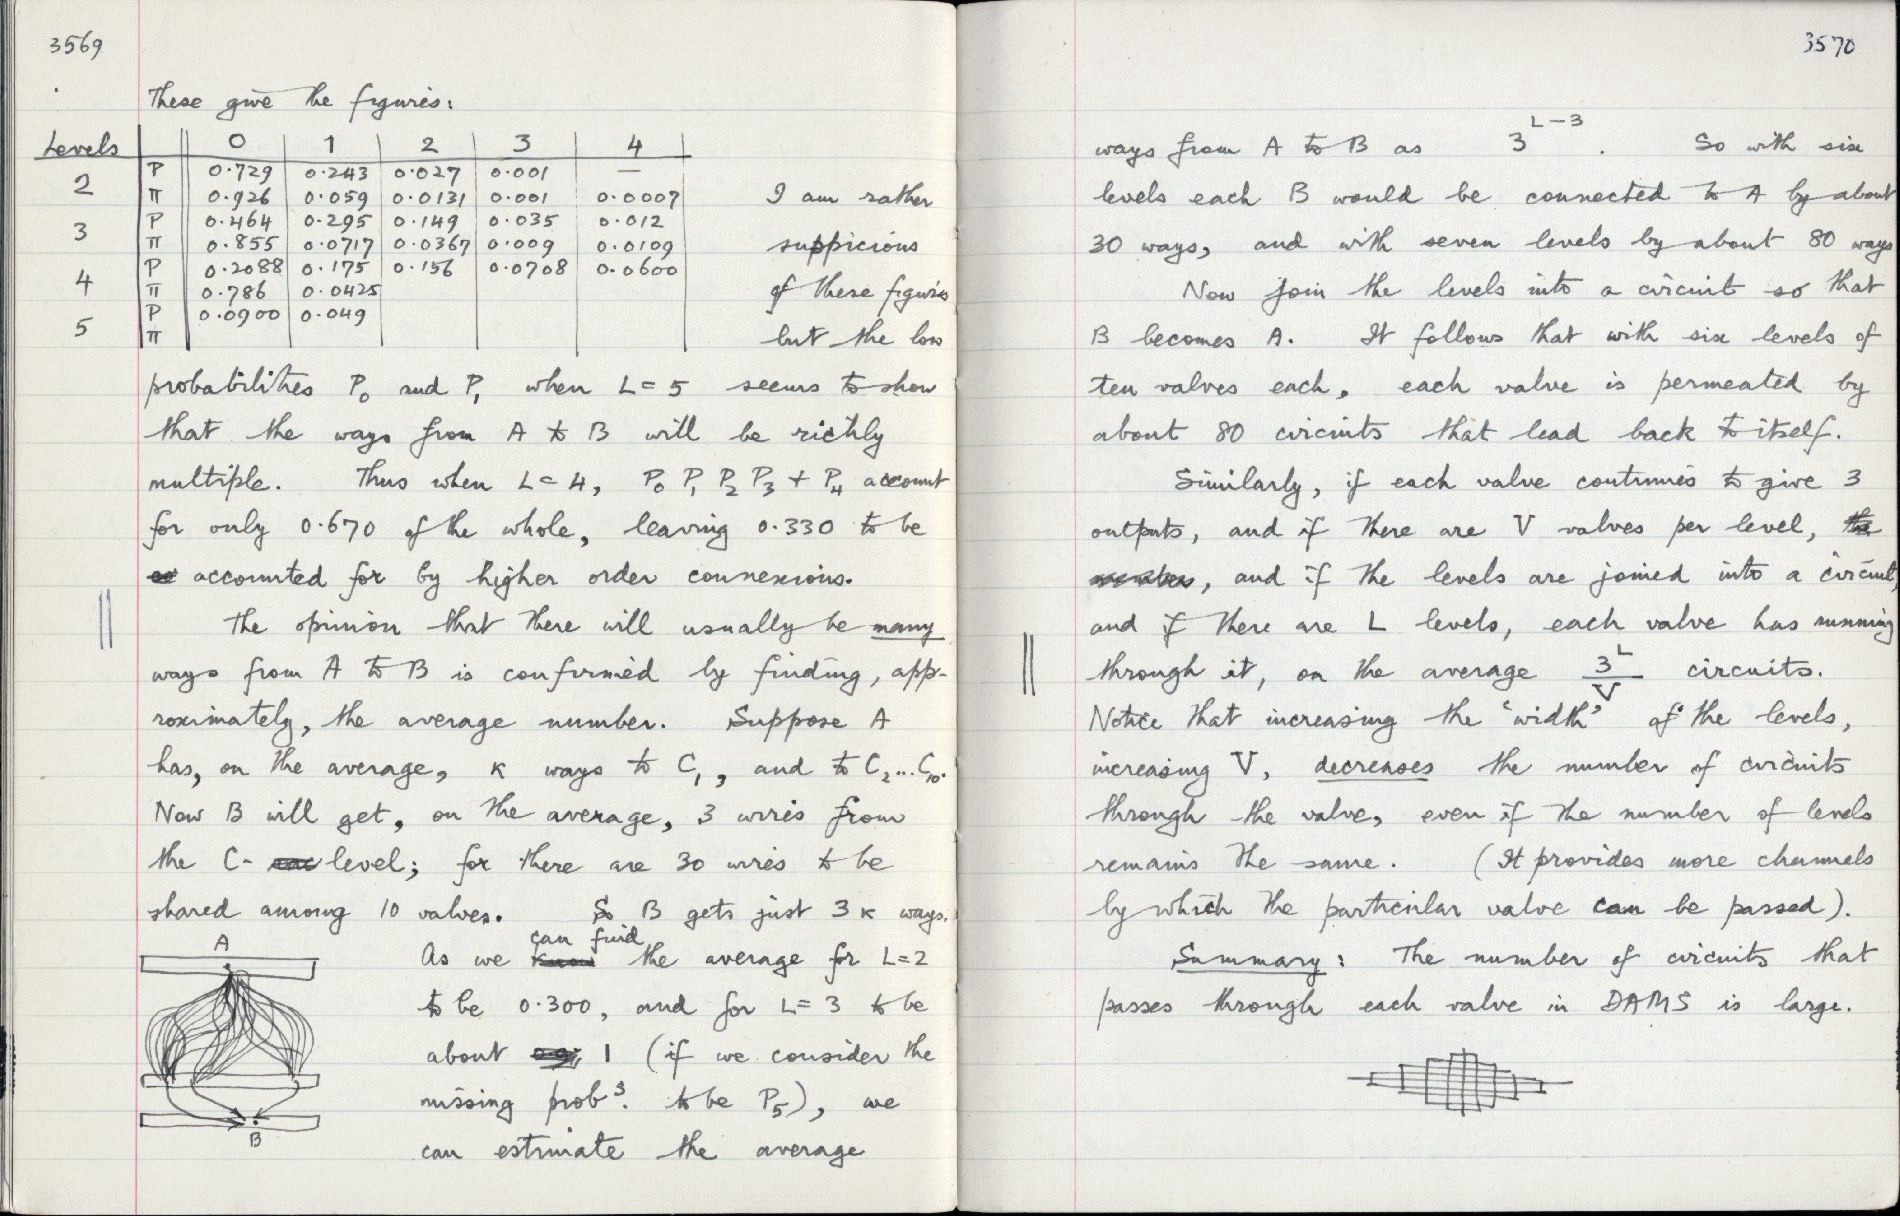 3569
These give the figures:
Levels 0 1 2 3 4
2 P 0.729 0.243 0.027 0.001 —
π 0.926 0.059 0.0131 0.001 0.0007
3 P 0.464 0.295 0.149 0.035 0.012
π 0.855 0.0717 0.0367 0.009 0.0109
4 P 0.2088 0.175 0.156 0.0708 0.0600
π 0.786 0.0425
5 P 0.0900 0.049
π
I am rather
suppicious
of these figures
but the low
probabilities P₀ and P₁ when L = 5 seems to show
that the ways from A to B will be richly
multiple. Thus when L = 4, P₀ P₁ P₂ P₃ + P₄ account
for only 0.670 of the whole, leaving 0.330 to be
accounted for by higher order connexions.
The opinion that there will usually be many
ways from A to B is confirmed by finding, app-
roximately, the average number. Suppose A
has, on the average, κ ways to C₁, and to C₂...C₁₀.
Now B will get, on the average, 3 wires from
the C- level; for there are 30 wires to be
shared among 10 valves. So B gets just 3κ ways.
As we can find the average for L=2
to be 0.300, and for L=3 to be
about 1 (if we consider the
missing probˢ. to be P₅), we
can estimate the average
A
B
3570
ways from A to B as 3^(L-3). So with six
levels each B would be connected to A by about
30 ways, and with seven levels by about 80 ways
Now join the levels into a circuit so that
B becomes A. It follows that with six levels of
ten valves each, each valve is permeated by
about 80 circuits that lead back to itself.
Similarly, if each valve continues to give 3
outputs, and if there are V valves per level, the
number, and if the levels are joined into a circuit,
and if there are L levels, each valve has running
through it, on the average 3^L/V circuits.
Notice that increasing the 'width' of the levels,
increasing V, decreases the number of circuits
through the valve, even if the number of levels
remains the same. (It provides more channels
by which the particular valve can be passed).
Summary: The number of circuits that
passes through each valve in DAMS is large.